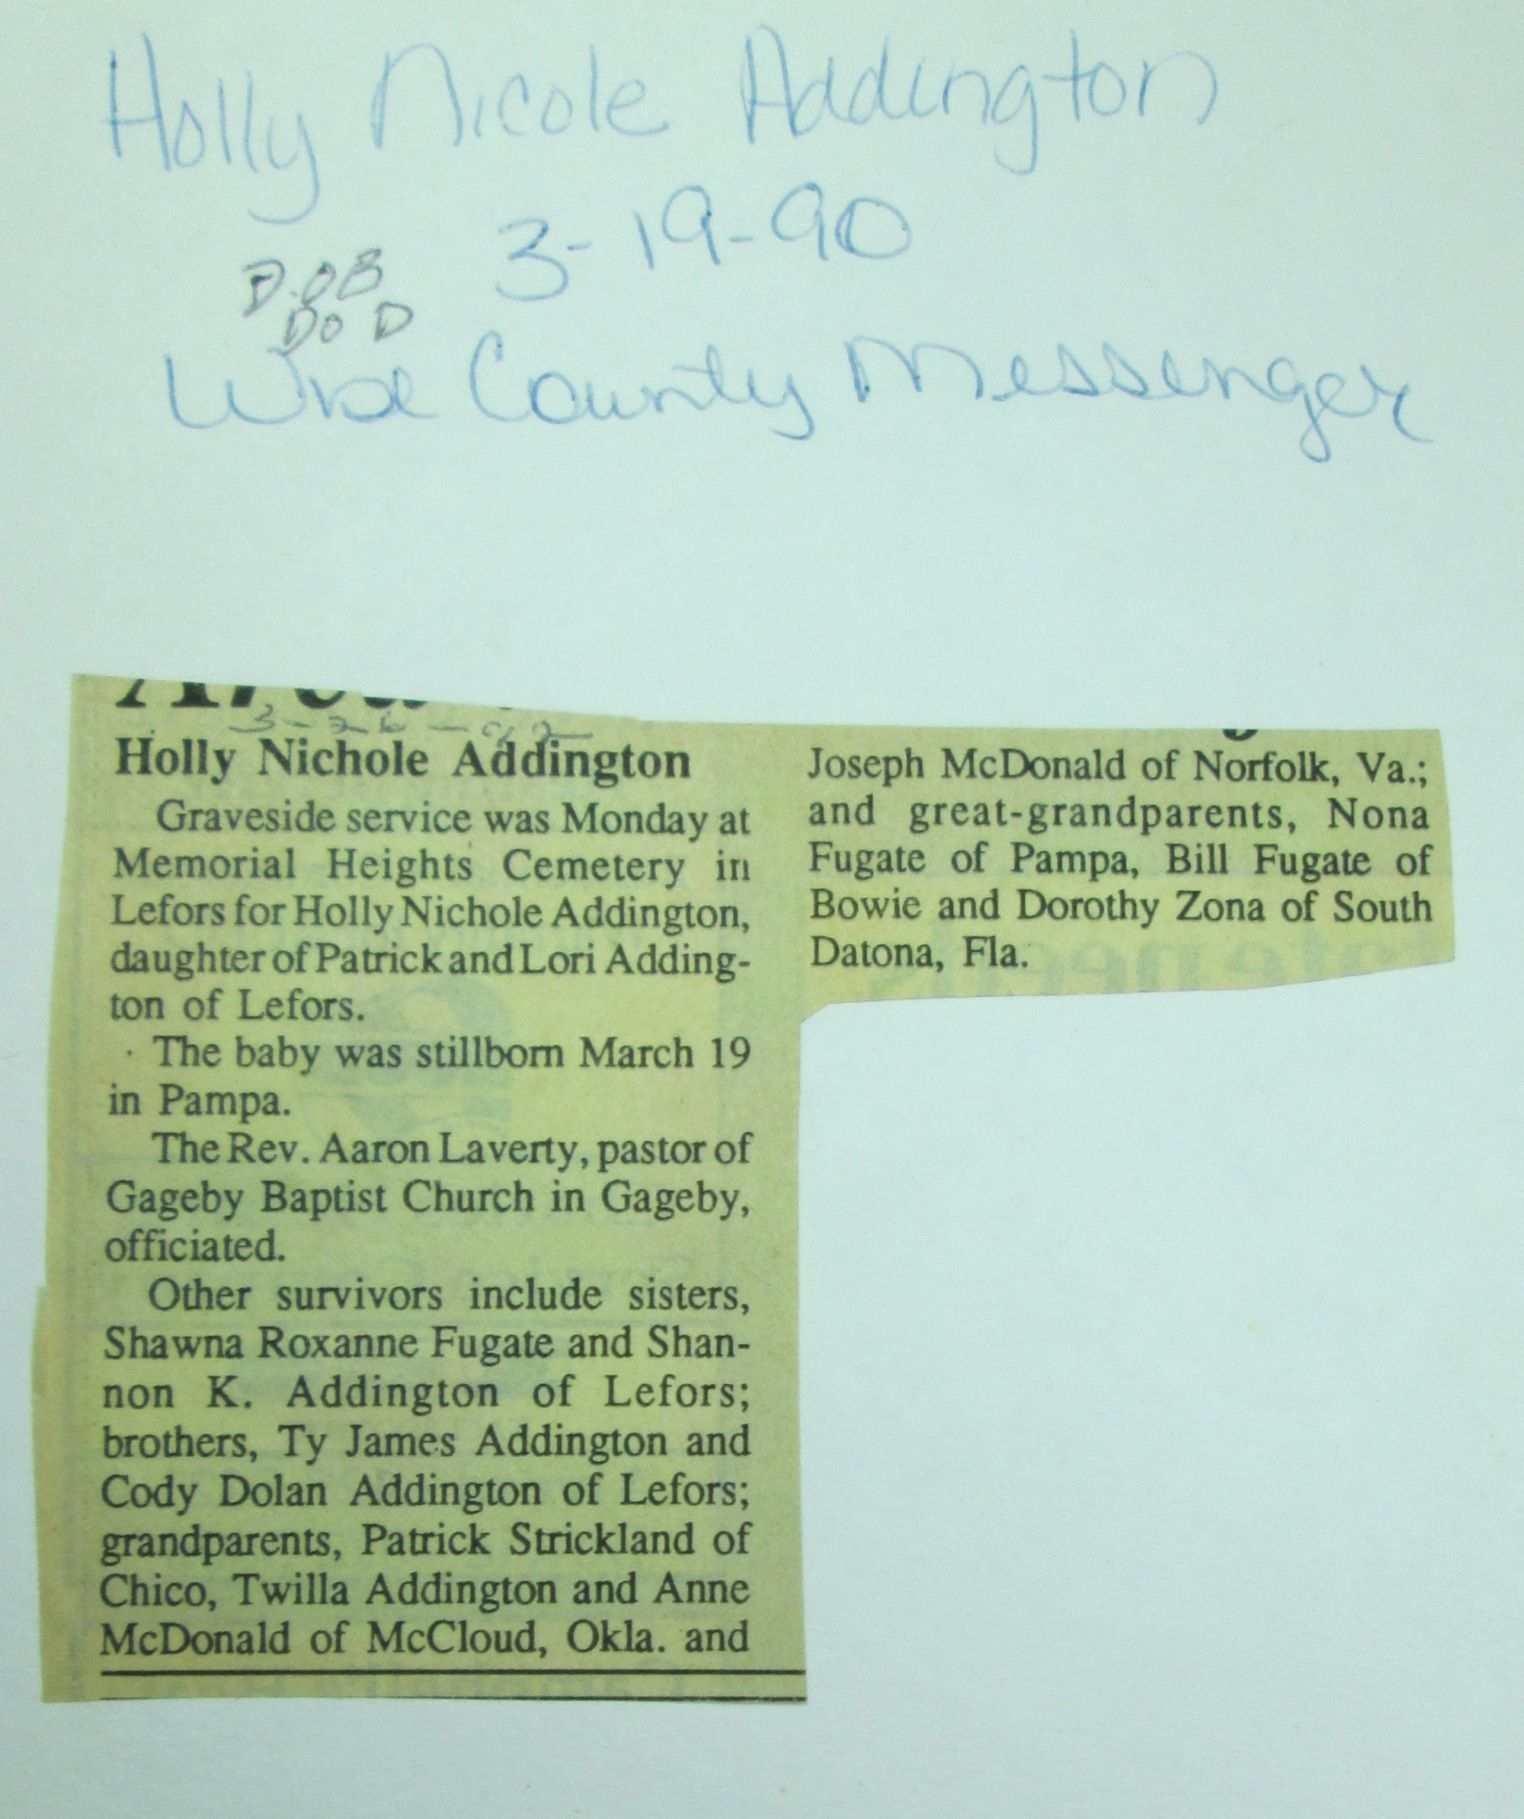 Holly Nicole Addington
3-19-90
D.OB
DO D
Wise County Messenger
Holly Nichole Addington
Graveside service was Monday at
Memorial Heights Cemetery in
Lefors for Holly Nichole Addington,
daughter of Patrick and Lori Adding-
ton of Lefors.
The baby was stillborn March 19
in Pampa.
The Rev. Aaron Laverty, pastor of
Gageby Baptist Church in Gageby,
officiated.
Other survivors include sisters,
Shawna Roxanne Fugate and Shan-
non K. Addington of Lefors;
brothers, Ty James Addington and
Cody Dolan Addington of Lefors;
grandparents, Patrick Strickland of
Chico, Twilla Addington and Anne
McDonald of McCloud, Okla. and
Joseph McDonald of Norfolk, Va.;
and great-grandparents, Nona
Fugate of Pampa, Bill Fugate of
Bowie and Dorothy Zona of South
Datona, Fla.